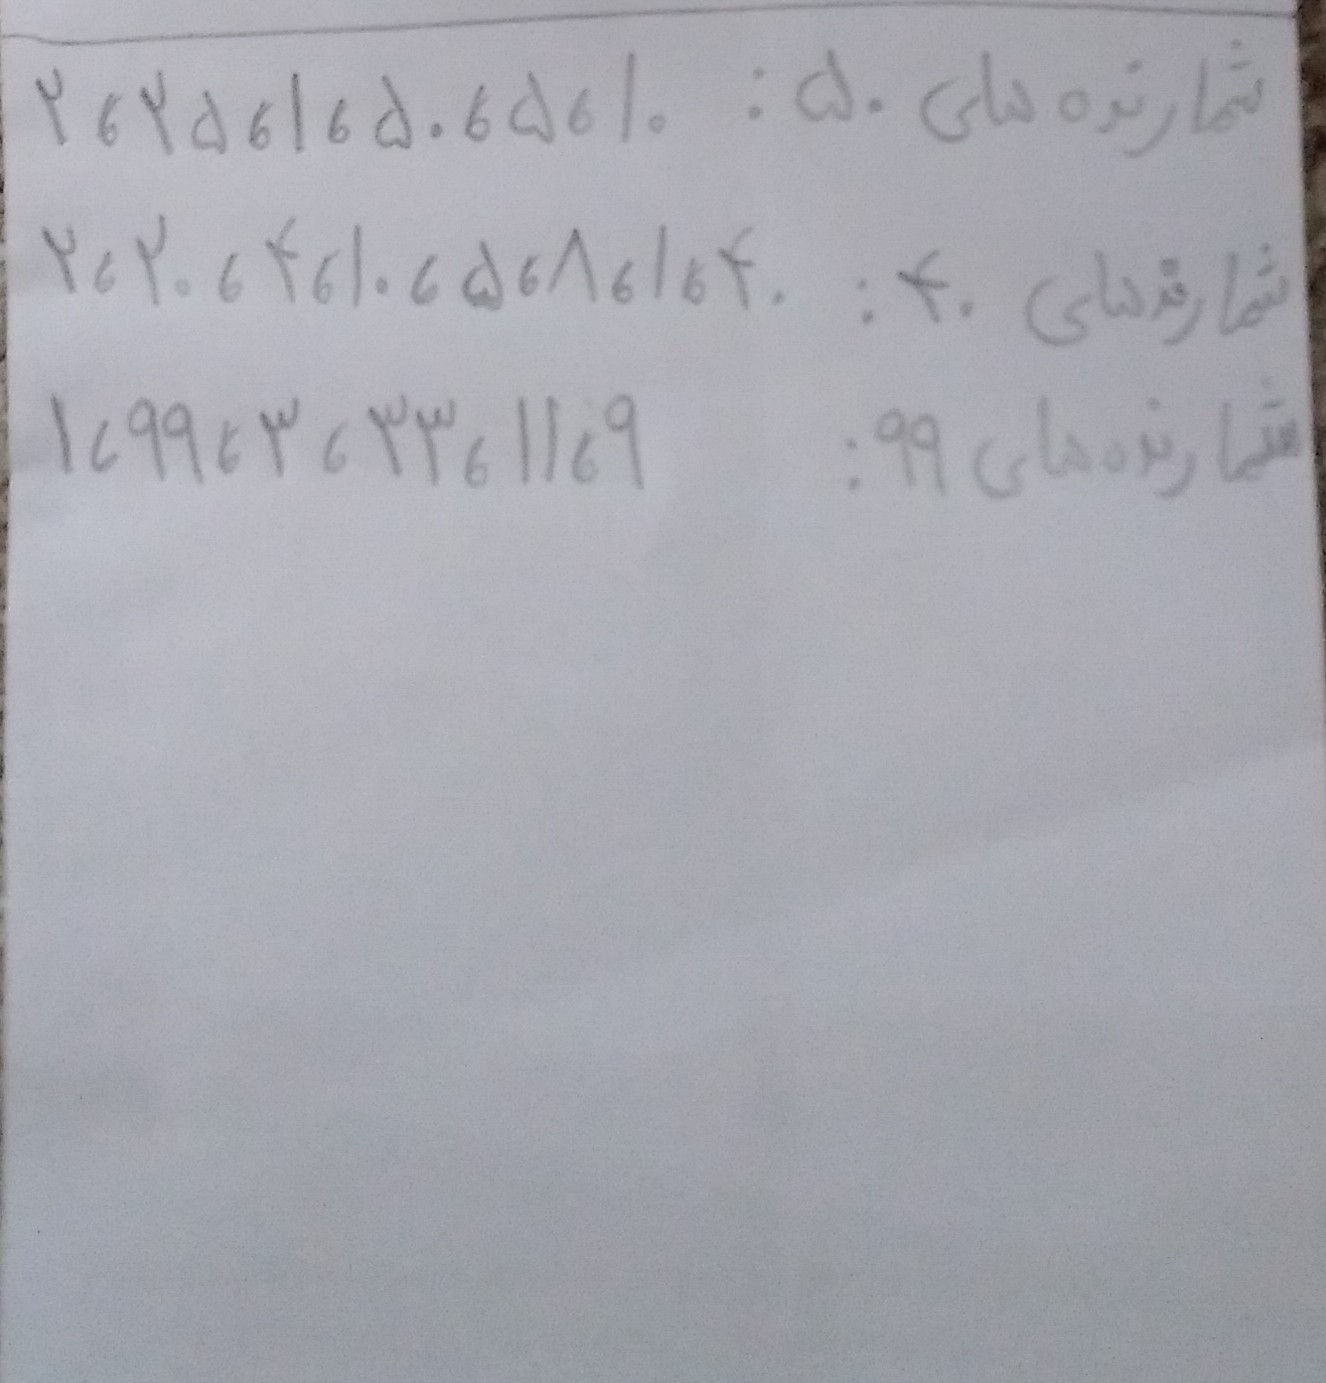 شمارنده های ۵۰ : ۲،۲۵،۱،۵۰،۵،۱۰
شمارندهای ۴۰ : ۲،۲۰،۴،۱۰،۵،۸،۱،۴۰
شمارنده های ۹۹ : ۱،۹۹،۳،۳۳،۱۱،۹